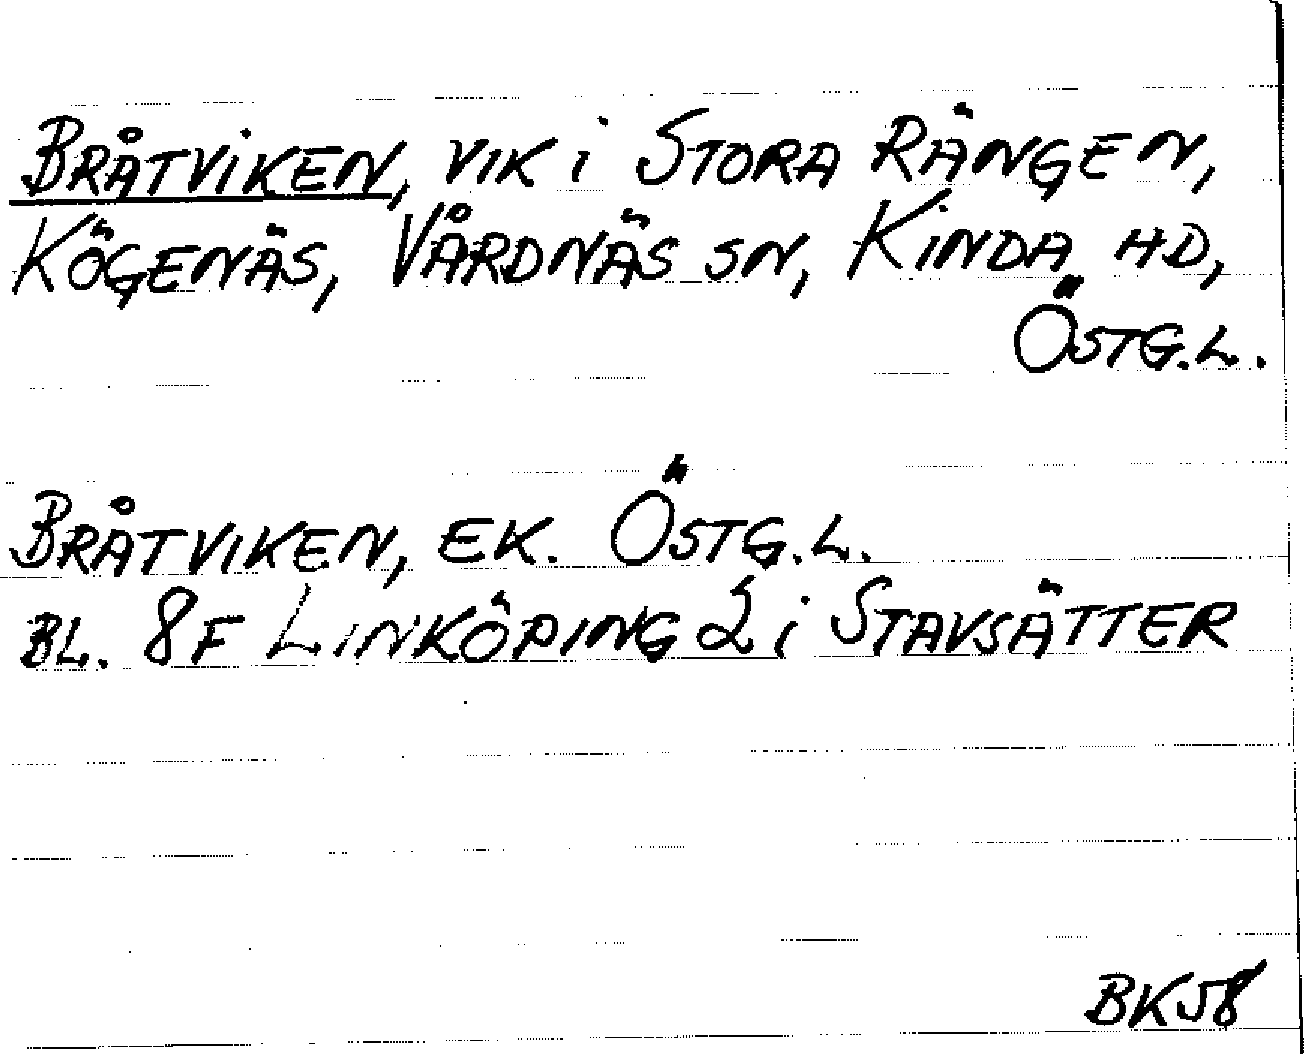 BRÅTVIKEN, VIK i STORA RÄNGEN,
KÖGENÄS, VÅRDNÄS SN, KINDA HD,
ÖSTG.L.
BRÅTVIKEN, EK. ÖSTG.L.
BL. 8F LINKÖPING 2 i STAVSÄTTER
BK58